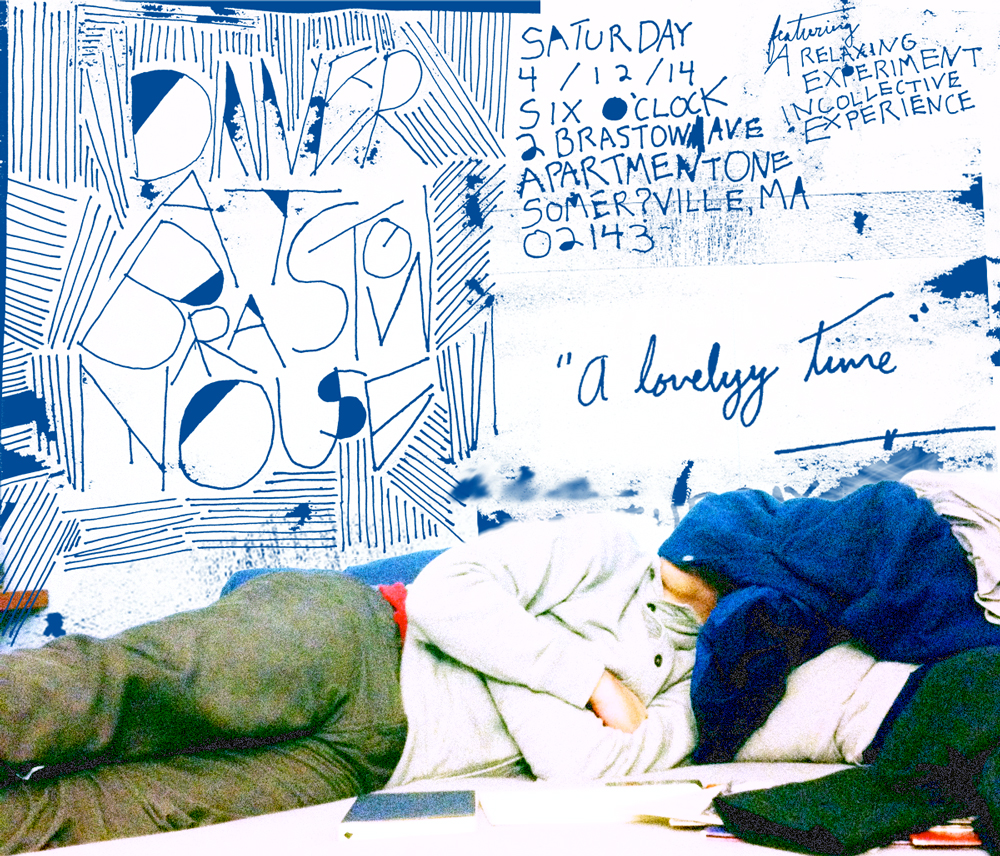 DINNER
AT
BRASTOW
HOUSE
SATURDAY
4/12/14
SIX O'CLOCK
2 BRASTOW AVE
APARTMENT ONE
SOMER?VILLE, MA
02143
featuring
A RELAXING
EXPERIMENT
IN COLLECTIVE
EXPERIENCE
"A lovelyy time